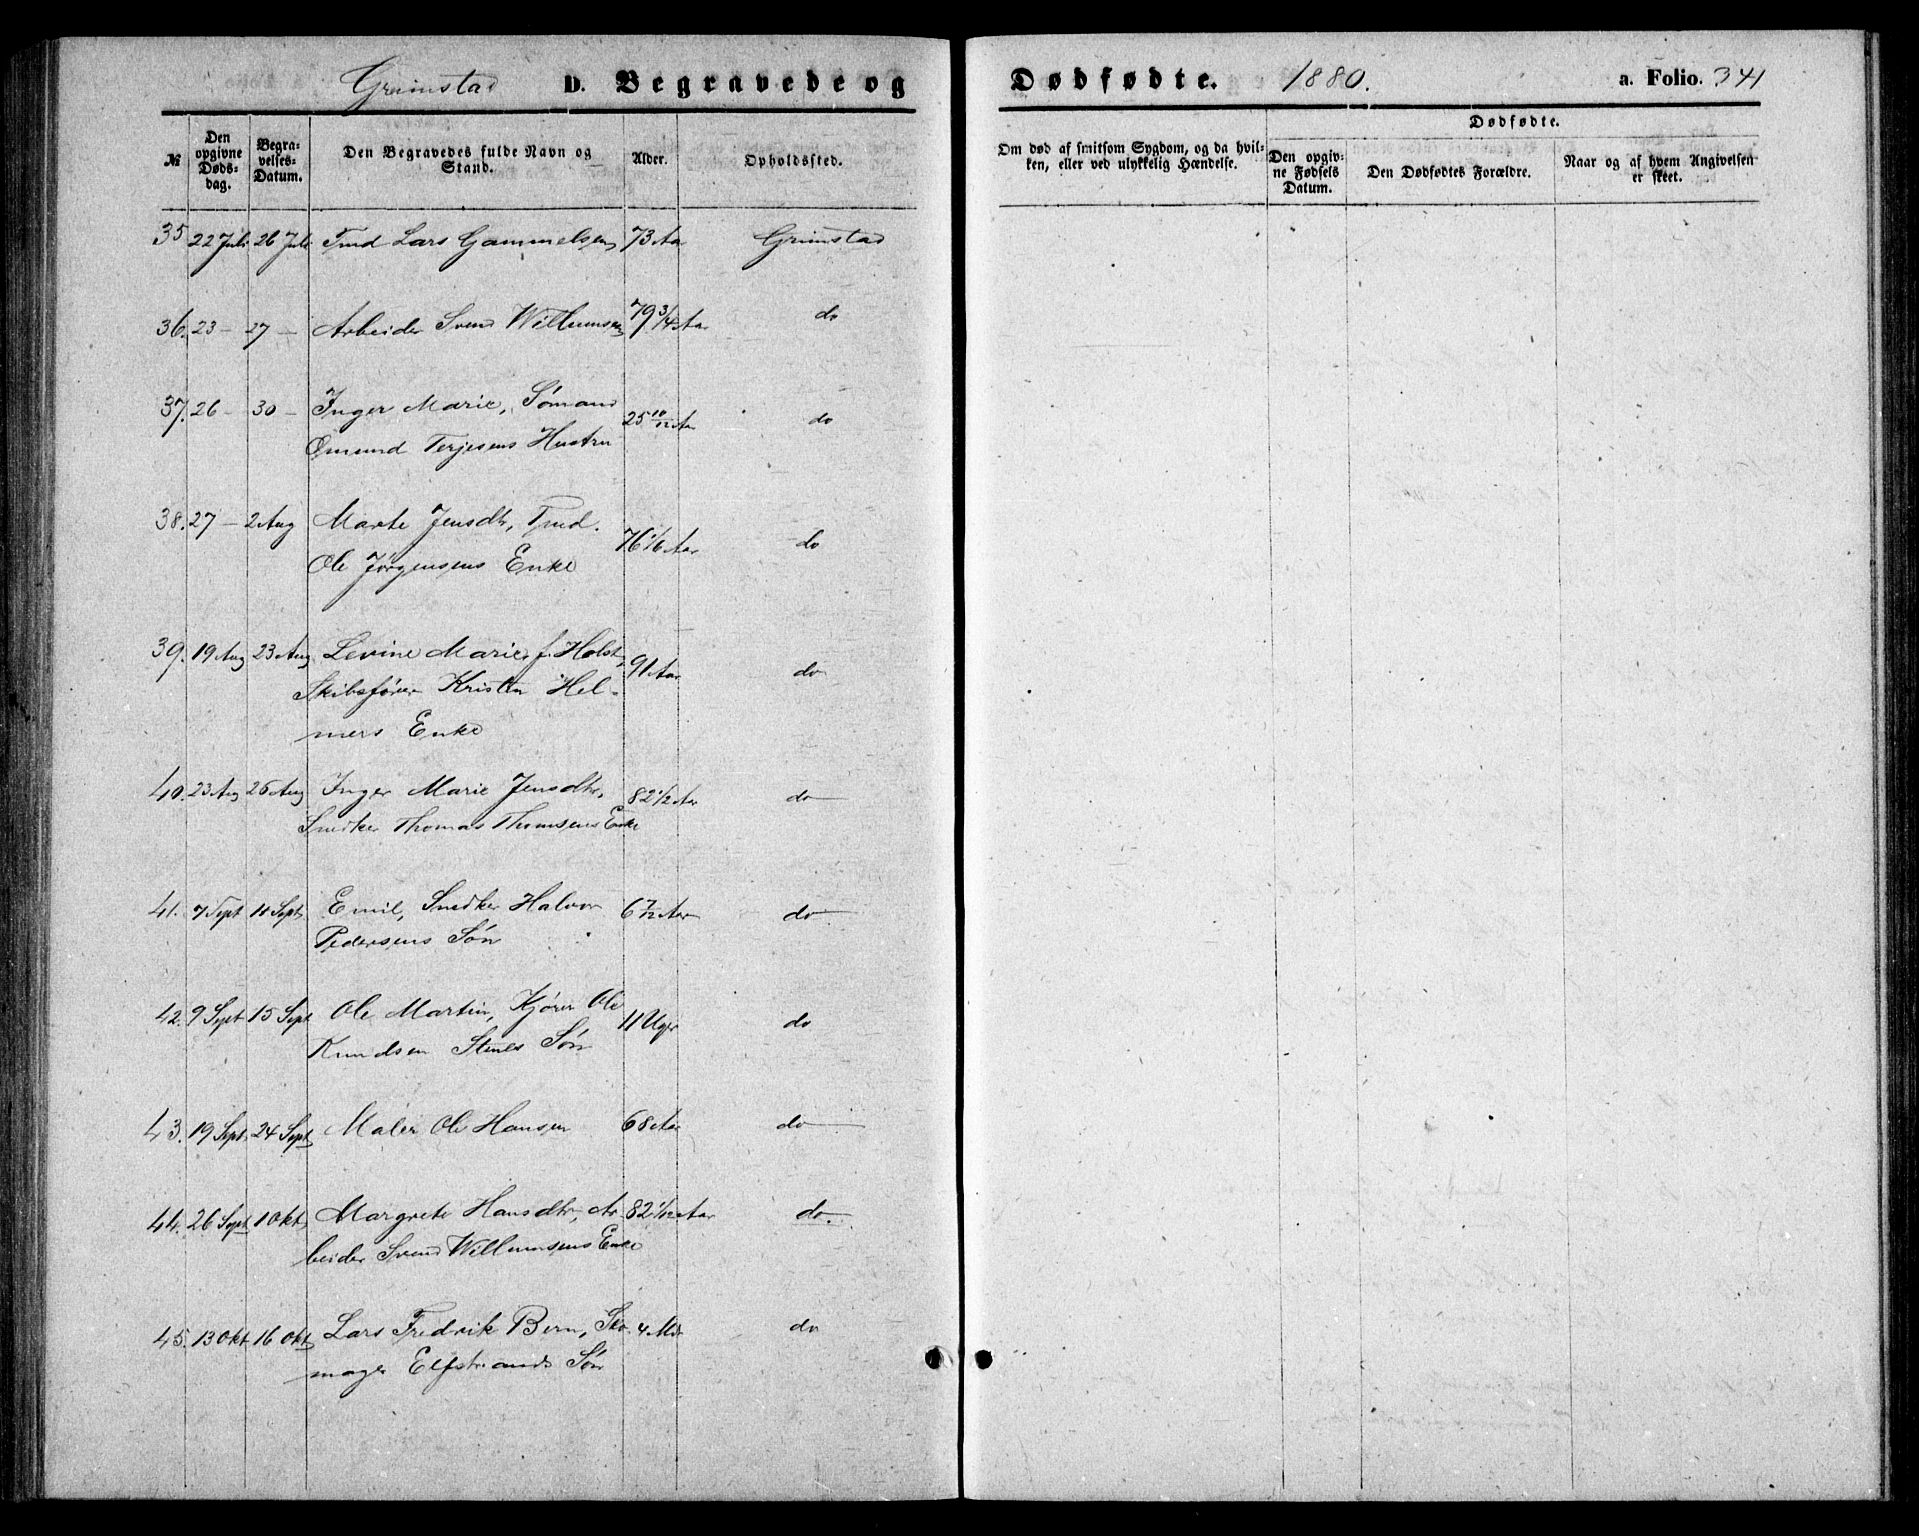 Grimstad D. Begravede og
№ Den opgivne Dødsdag. Begravelses-Datum. Den Begravedes fulde Navn og Stand. Alder. Opholdssted.
35 22 Juli 26 Juli Tmd Lars Gammelsen 73 Aar Grimstad
36. 23 — 27 — Arbeider Svend Willumsen 79 3/4 Aar do
37. 26 — 30 — Inger Marie, Sømand
Ømund Terjesens Hustru 25 10/12 Aar do
38. 27 — 2 Aug Marte Jensdtr, Tmd.
Ole Jørgensens Enke 76 1/6 Aar do
39. 19 Aug 23 Aug Levine Marie f. Holst,
Skibsfører Kristen Hel-
mers Enke 91 Aar do
40. 23 Aug 26 Aug Inger Marie Jensdtr,
Snedker Thomas Thomsens Enke 82 1/2 Aar do
41. 7 Sept 11 Sept Emil, Snedker Halvor
Pedersens Søn 6 7/12 Aar do
42. 9 Sept 15 Sept Ole Martin, Kjører Ole
Knudsen Stines Søn 11 Uger do
43. 19 Sept. 24 Sept Maler Ole Hansen 68 Aar do
44. 26 Sept 1 Okt. Margrete Hansdtr, Ar-
beider Svend Willumsens Enke 82 1/12 Aar do.
45. 13 Okt 16 Okt Lars Fredrik Bern, Sko-
mager Elfstrands Søn 4 Mdr do
Dødfødte. 1880. a. Folio. 341
Om død af smitsom Sygdom, og da hvilken, eller ved ulykkelig Hændelse. Dødfødte.
Den opgivne Fødsels Datum. Den Dødfødtes Forældre. Naar og af hvem Angivelsen er skeet.